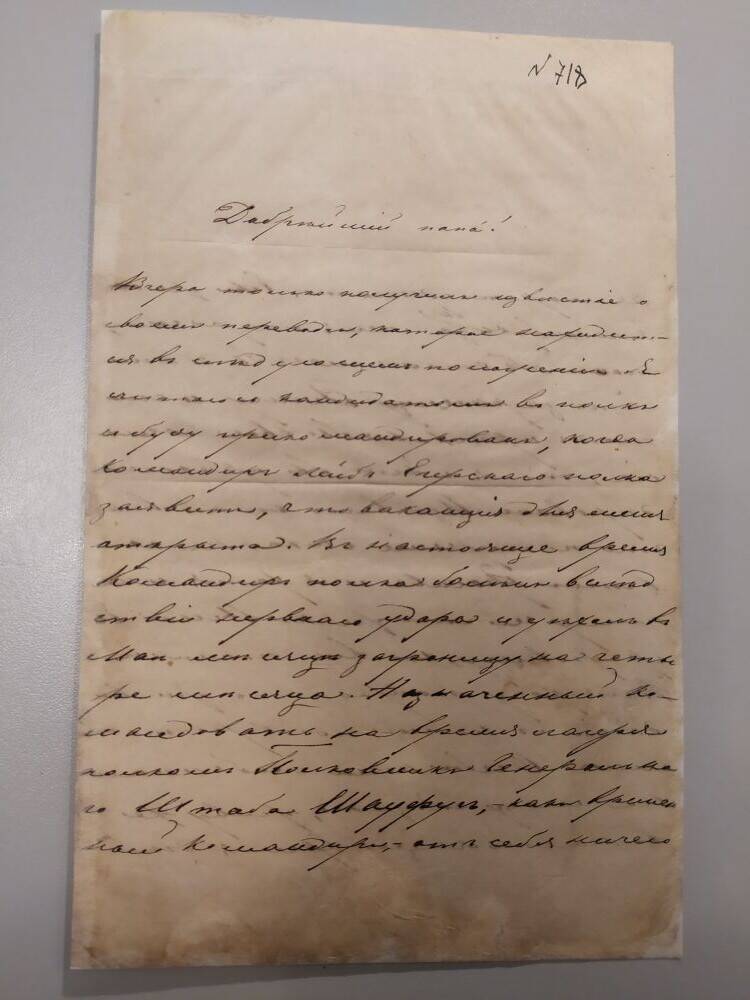 N 718
Добрѣйшій папа!
Вчера только получилъ извѣстіе о
своемъ переводѣ, которое находит-
ся въ слѣдующемъ положеніи. Я
считаюсь кандидатомъ въ полкъ
и буду прикомандированъ, когда
Командиръ Лейбъ Егерскаго полка
заявитъ, что вакансія для меня
открыта. Въ настоящее время
Командиръ полка боленъ вслѣд
ствіи нервнаго удара и уѣхалъ въ
Маѣ мѣсяцѣ заграницу на четы
ре мѣсяца. Назначенный ко-
мандовать на время лагеря
полкомъ Полковникъ Генеральна
го Штаба Шауфусъ, - какъ времен
ный командиръ, - отъ себя ничего